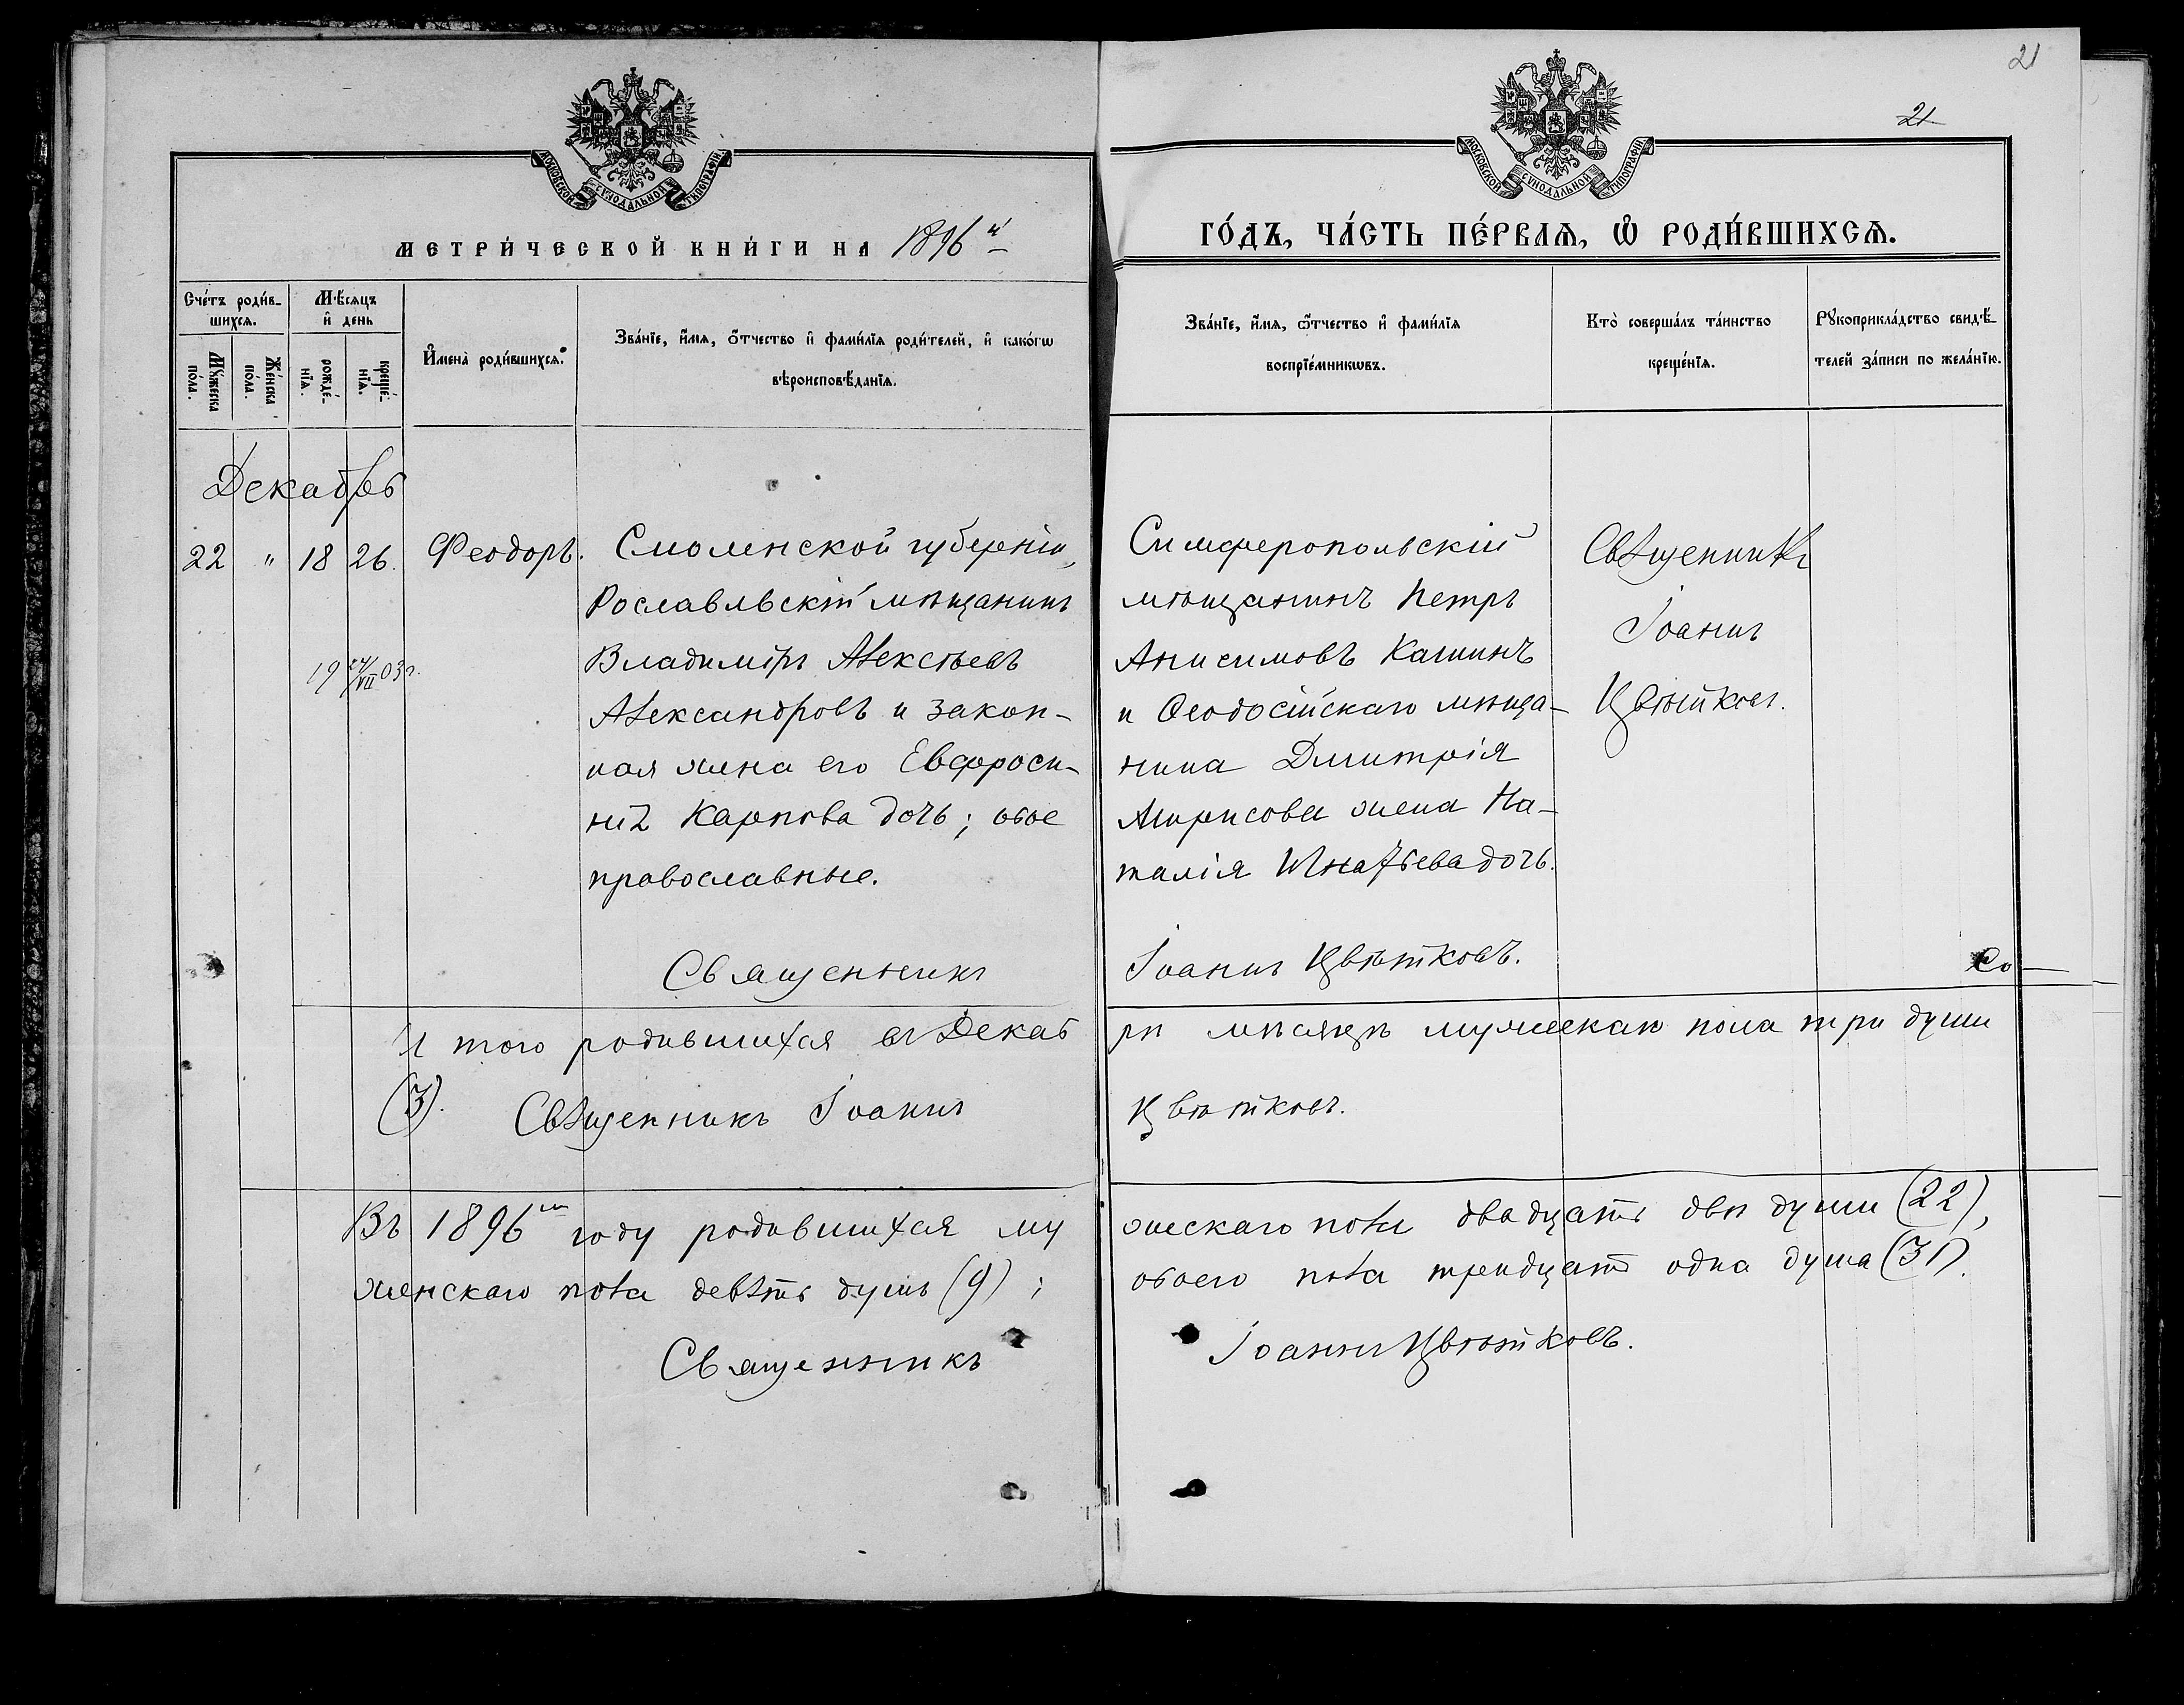 21
21
МОСКОВСКОЙ СѴНОДАЛЬНОЙ ТИПОГРАФІИ
МОСКОВСКОЙ СѴНОДАЛЬНОЙ ТИПОГРАФІИ
МЕТРИ́ЧЕСКОЙ КНИ́ГИ НА 1896й
ГО́ДЪ, ЧА́СТЬ ПЕ́РВАѦ, Ѡ҆ РОДИ́ВШИХСѦ.
Сче́тъ роди́в-
шихсѧ.
Мѣ́сѧцъ
и҆ день
Мꙋ́жеска
по́ла.
Же́нска
по́ла.
рожде́-
нїѧ.
креще́-
нїѧ.
И҆мена̀ роди́вшихсѧ.
Зва́нїе, и҆́мѧ, ѻ҆́тчество и҆ фами́лїѧ роди́телей, и҆ како́гѡ
вѣроисповѣ́данїѧ.
Зва́нїе, и҆́мѧ, ѻ҆́тчество и҆ фами́лїѧ
воспрїе́мникѡвъ.
Кто̀ соверша́лъ та́инство
креще́нїѧ.
Рꙋкоприкла́дство свидѣ́-
телей за́писи по жела́нїю.
Декабрь
22 " 18 26. Феодоръ.
Смоленской губерніи,
Рославльскій мѣщанинъ
Владиміръ Алексѣевъ
Александровъ и закон-
ная жена его Евфроси-
нія Карпова дочь; обое
православные.
19 24/VII 03 г.
Симферопольскій
мѣщанинъ Петръ
Анисимовъ Кашинъ
и Ѳеодосійскаго мѣща-
нина Дмитрія
жена На-
талія Игнатьева дочь.
Священникъ
Іоаннъ
Цвѣтковъ.
Священникъ
Іоаннъ Цвѣтковъ.
Со-
Итого родившихся въ Декаб
рѣ мѣсяцѣ мужескаго пола три души
(3). Священникъ Іоаннъ
Цвѣтковъ.
Въ 1896мъ году родившихся му
жескаго пола двадцать двѣ души (22),
женскаго пола девять душъ (9);
обоего пола тридцать одна душа (31).
Священникъ
Іоаннъ Цвѣтковъ.